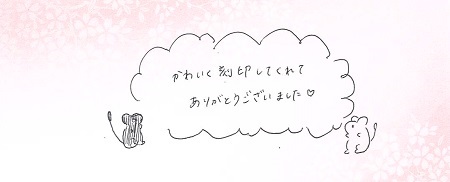 かわいく刻印してくれて
ありがとうございました♡